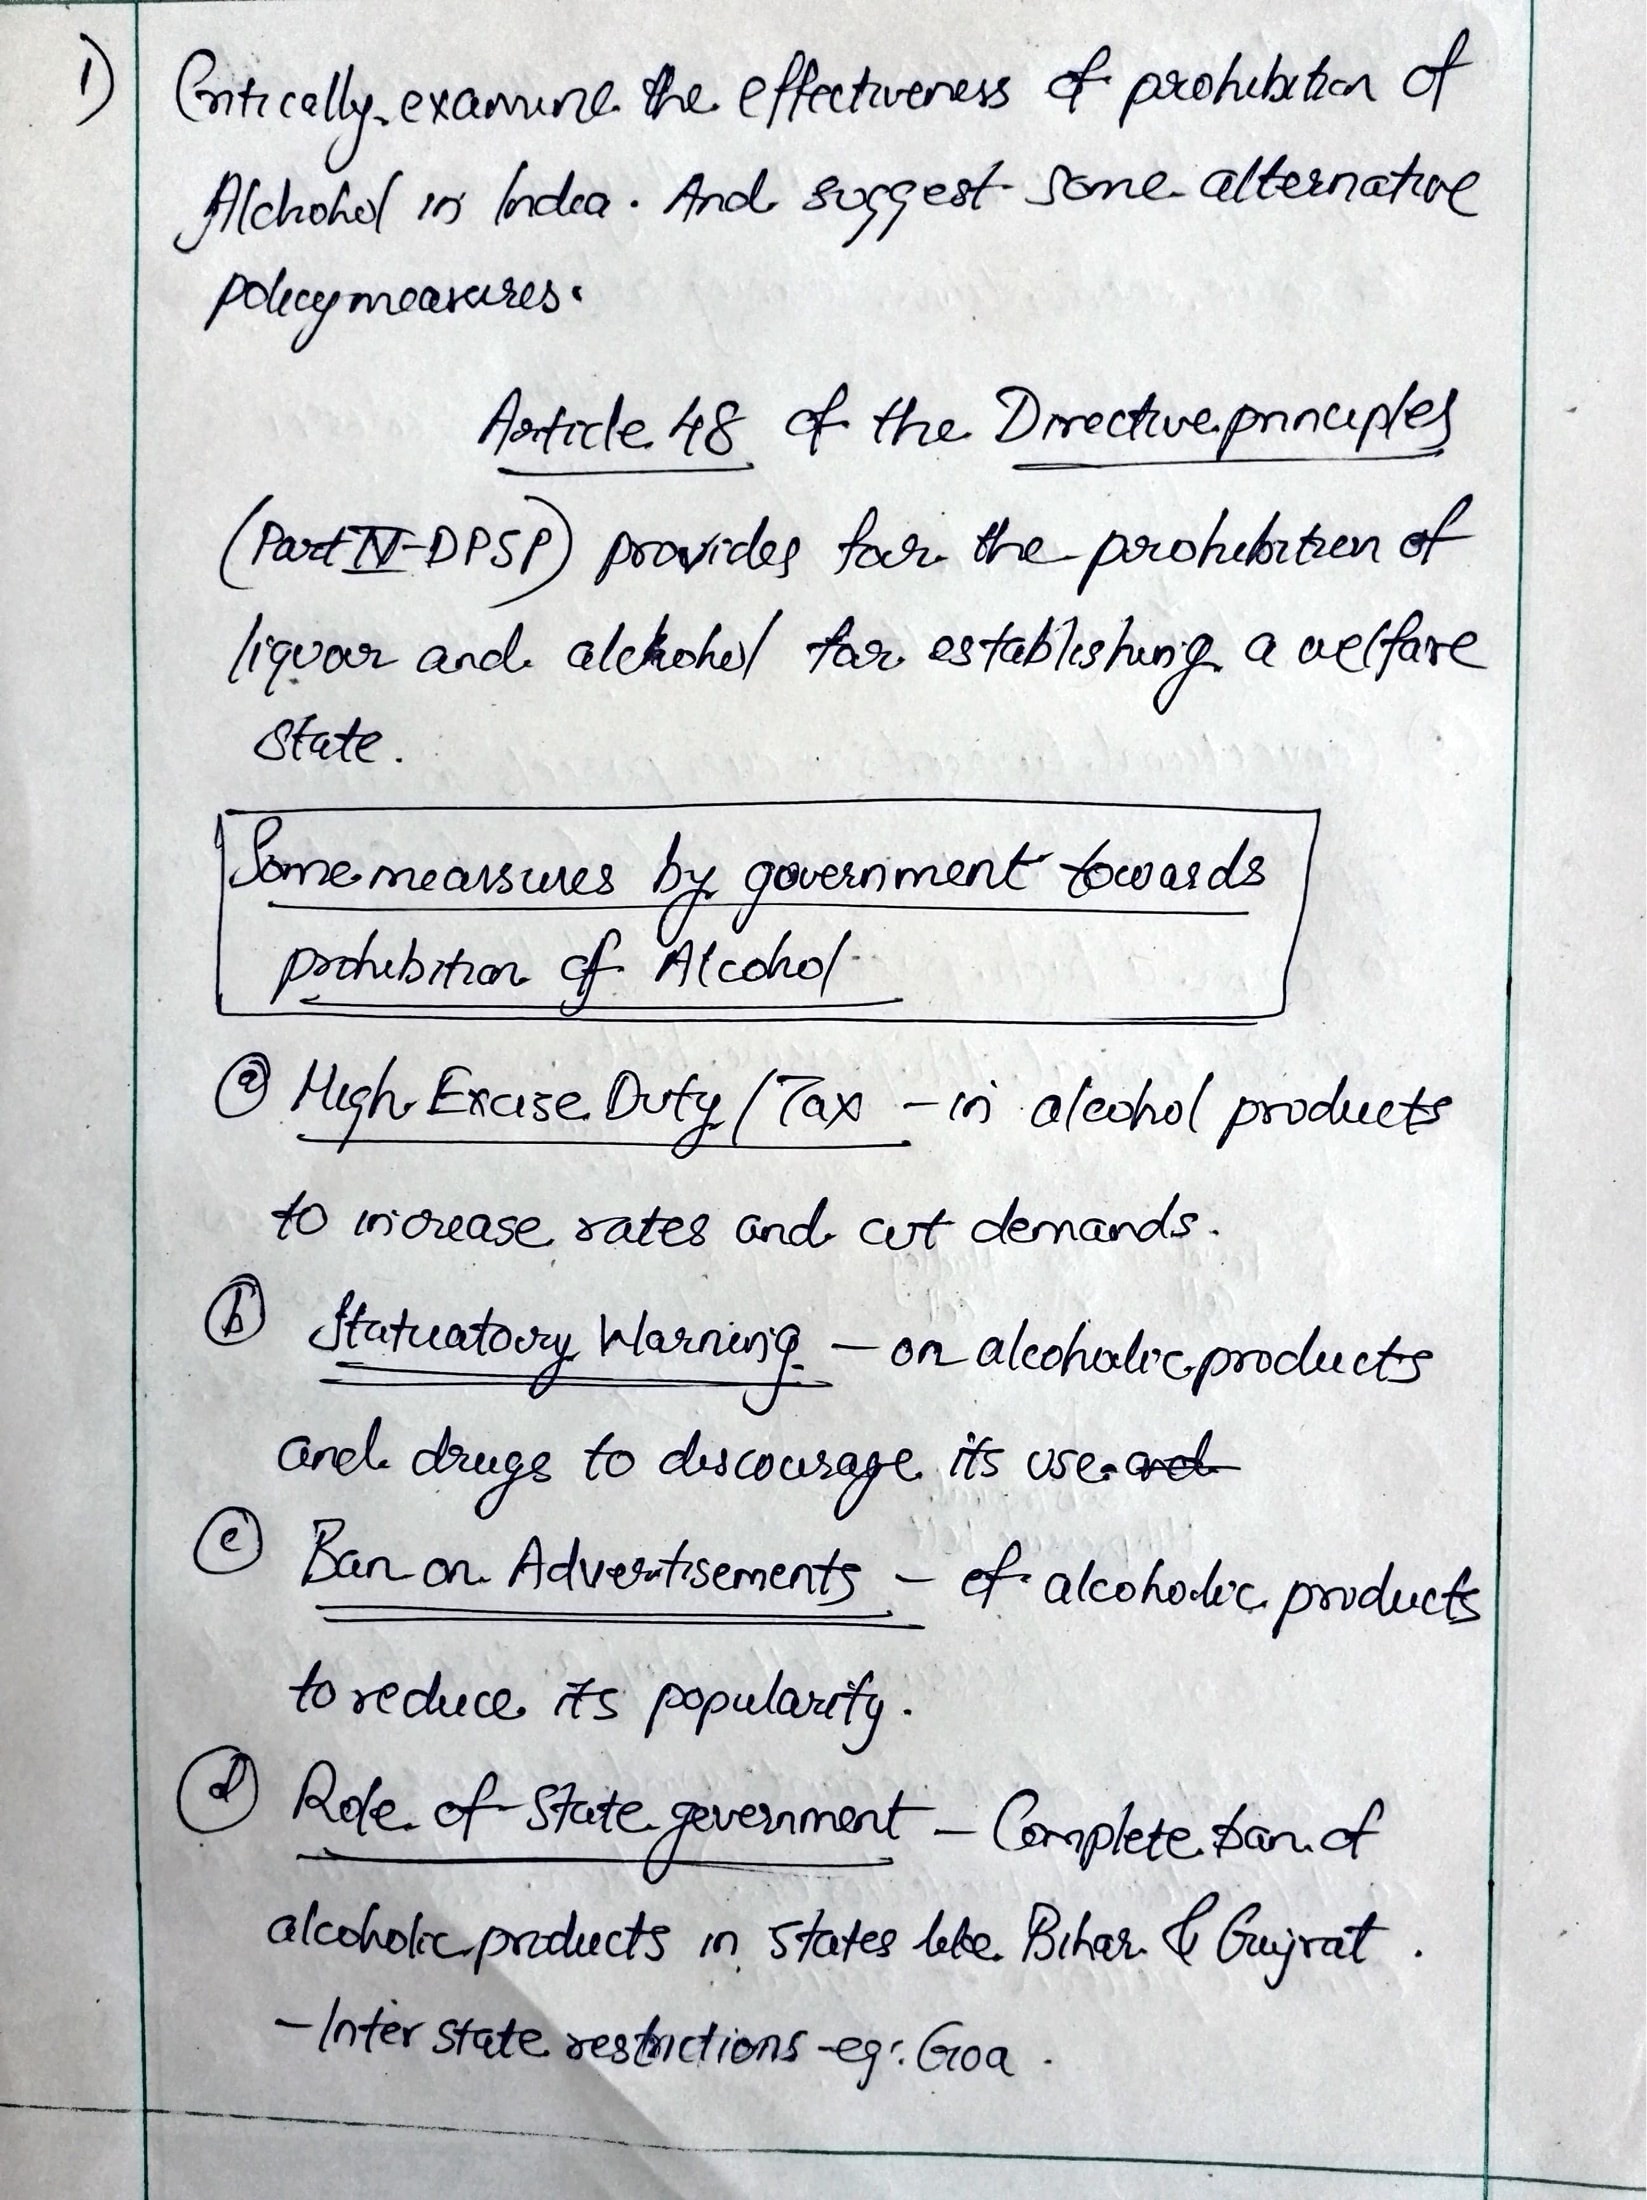 1) Critically examine the effectiveness of prohibition of
Alchohol in India. And suggest some alternative
policy measures.
Article 48 of the Directive principles
(Part IV-DPSP) provides for the prohibition of
liquor and alchohol for establishing a welfare
state.
Some measures by government towards
prohibition of Alcohol
(a) High Excise Duty / Tax - in alcohol products
to increase rates and cut demands.
(b) Statuatory Warning - on alcoholic products
and drugs to discourage its use. and
(c) Ban on Advertisements - of alcoholic products
to reduce its popularity.
(d) Role of State government - Complete ban of
alcoholic products in states like Bihar & Gujrat.
- Inter state restrictions - eg: Goa.